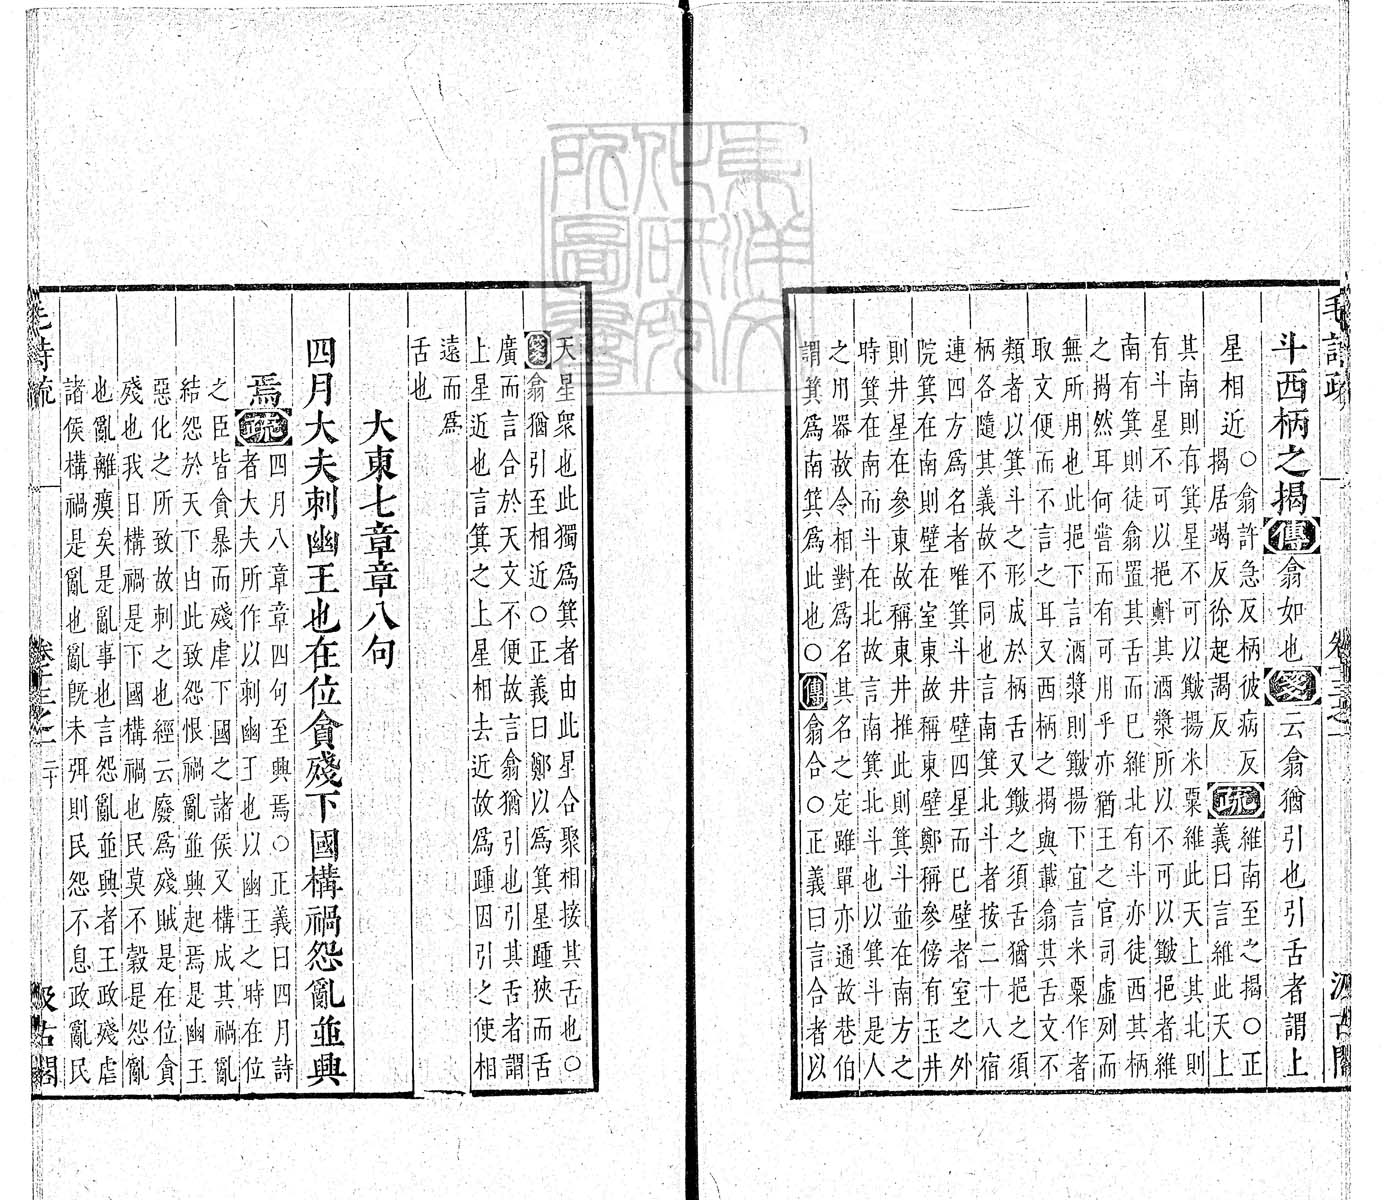 斗西柄之揭傳翕如也箋云翕猶引也引舌者謂上
星相近○翕許急反柄彼病反
揭居竭反徐起謁反疏維南至之揭○正
義曰言維此天上
其南則有箕星不可以簸揚米粟維此天上其北則
有斗星不可以挹㪺其酒漿所以不可以簸挹者維
南有箕則徒翕置其舌而已維北有斗亦徒西其柄
之揭然耳何嘗而有可用乎亦猶王之官司虛列而
無所用也此挹下言酒漿則簸揚下宜言米粟作者
取文便而不言之耳又西柄之揭與載翕其舌文不
類者以箕斗之形成於柄舌又簸之須舌猶挹之須
柄各隨其義故不同也言南箕北斗者按二十八宿
連四方爲名者唯箕斗井壁四星而已壁者室之外
院箕在南則壁在室東故稱東壁鄭稱參傍有玉井
則井星在參東故稱東井推此則箕斗並在南方之
時箕在南而斗在北故言南箕北斗也以箕斗是人
之用器故令相對爲名其名之定雖單亦通故巷伯
謂箕爲南箕爲此也○傳翕合○正義曰言合者以
天星衆也此獨爲箕者由此星合聚相接其舌也○
箋翕猶引至相近○正義曰鄭以爲箕星踵狹而舌
廣而言合於天文不便故言翕猶引也引其舌者謂
上星近也言箕之上星相去近故爲踵因引之使相
遠而爲
舌也
大東七章章八句
四月大夫刺幽王也在位貪殘下國構禍怨亂並興
焉疏四月八章章四句至興焉○正義曰四月詩
者大夫所作以刺幽王也以幽王之時在位
之臣皆貪暴而殘虐下國之諸侯又構成其禍亂
結怨於天下由此致怨恨禍亂並興起焉是幽王
惡化之所致故刺之也經云廢爲殘賊是在位貪
殘也我日構禍是下國構禍也民莫不穀是怨亂
也亂離瘼矣是亂事也言怨亂並興者王政殘虐
諸侯構禍是亂也亂旣未弭則民怨不息政亂民
毛詩疏
卷十三之一
二十
汲古閣